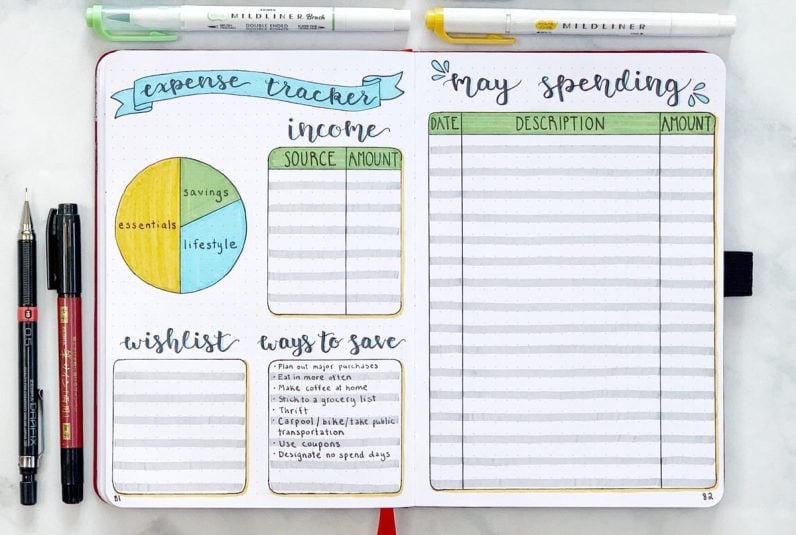 MILDLINER Brush
DOUBLE ENDED
MILDLINER
expense tracker
income
SOURCE AMOUNT
essentials
savings
lifestyle
wishlist
ways to save
· Plan out major purchases
· Eat in more often
· Make coffee at home
· Stick to a grocery list
· Thrift
· Carpool/bike/take public
transportation
· Use coupons
· Designate no spend days
81
may spending
DATE DESCRIPTION AMOUNT
82
0.5